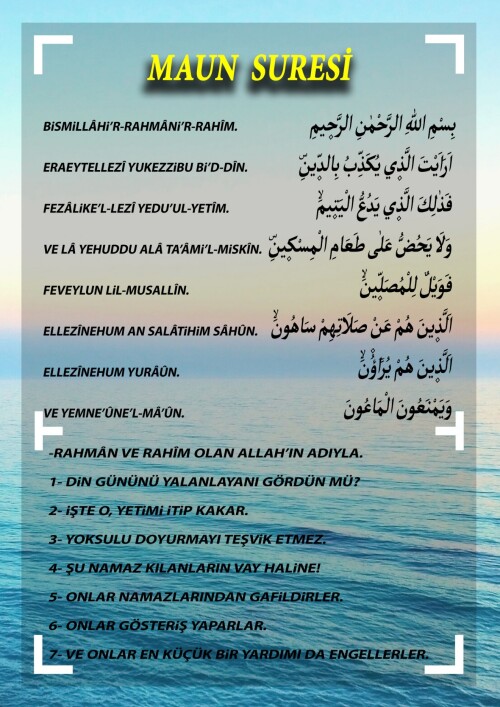 MAUN SURESİ
BiSMiLLÂHi’R-RAHMÂNi’R-RAHÎM. بِسْمِ اللهِ الرَّحْمٰنِ الرَّحٖيمِ
ERAEYTELLEZÎ YUKEZZiBU Bi’D-DÎN. اَرَاَيْتَ الَّذٖي يُكَذِّبُ بِالدّٖينِؕ
FEZÂLiKE’L-LEZÎ YEDU’UL-YETÎM. فَذٰلِكَ الَّذٖي يَدُعُّ الْيَتٖيمَۙ
VE LÂ YEHUDDU ALÂ TA’ÂMi’L-MiSKÎN. وَلَا يَحُضُّ عَلٰى طَعَامِ الْمِسْكٖينِؕ
FEVEYLUN LiL-MUSALLÎN. فَوَيْلٌ لِلْمُصَلّٖينَۙ
ELLEZÎNEHUM AN SALÂTiHiM SÂHÛN. اَلَّذٖينَ هُمْ عَنْ صَلَاتِهِمْ سَاهُونَۙ
ELLEZÎNEHUM YURÂÛN. اَلَّذٖينَ هُمْ يُرَٓاؤُ۫نَۙ
VE YEMNE’ÛNE’L-MÂ’ÛN. وَيَمْنَعُونَ الْمَاعُونَ
-RAHMÂN VE RAHÎM OLAN ALLAH’IN ADIYLA.
1- DiN GÜNÜNÜ YALANLAYANI GÖRDÜN MÜ?
2- iŞTE O, YETiMi iTiP KAKAR.
3- YOKSULU DOYURMAYI TEŞViK ETMEZ.
4- ŞU NAMAZ KILANLARIN VAY HALiNE!
5- ONLAR NAMAZLARINDAN GAFiLDiRLER.
6- ONLAR GÖSTERiŞ YAPARLAR.
7- VE ONLAR EN KÜÇÜK BiR YARDIMI DA ENGELLERLER.